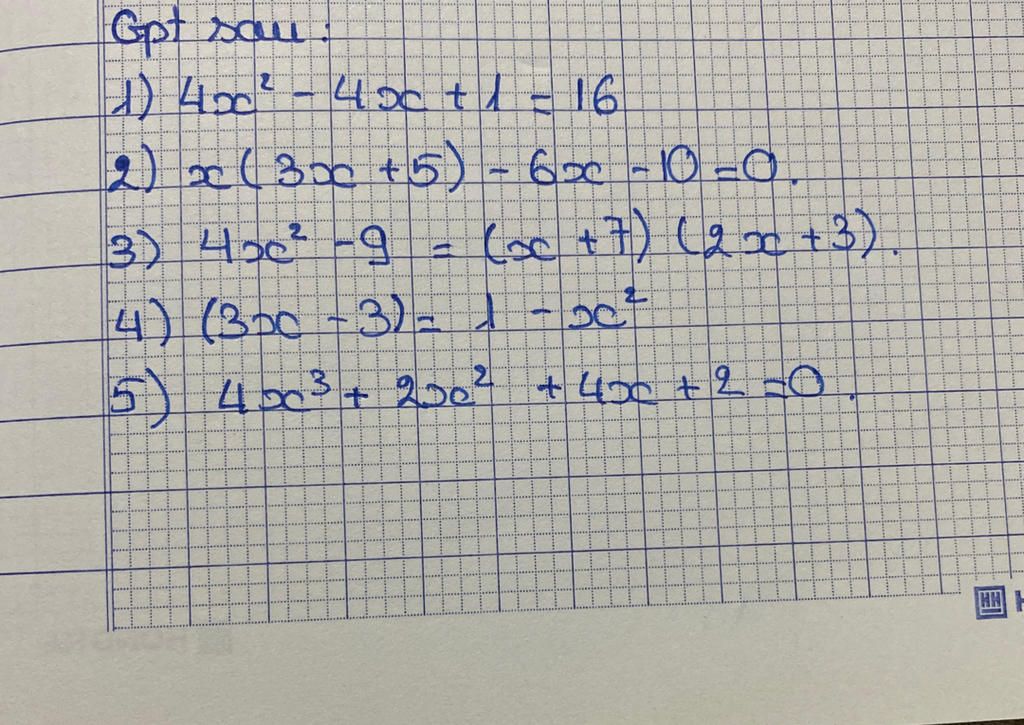 Gpt sau:
1) 4x² - 4x + 1 = 16
2) x(3x + 5) - 6x - 10 = 0.
3) 4x² - 9 = (x + 7) (2x + 3).
4) (3x - 3) = 1 - x²
5) 4x³ + 2x² + 4x + 2 = 0.
HH